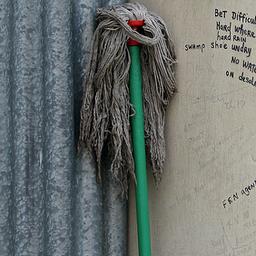 BET Difficul
HARD WHERE
hard RAIN
swamp shoe UNDRY
NO WATE
on desola
F.E.N. agen